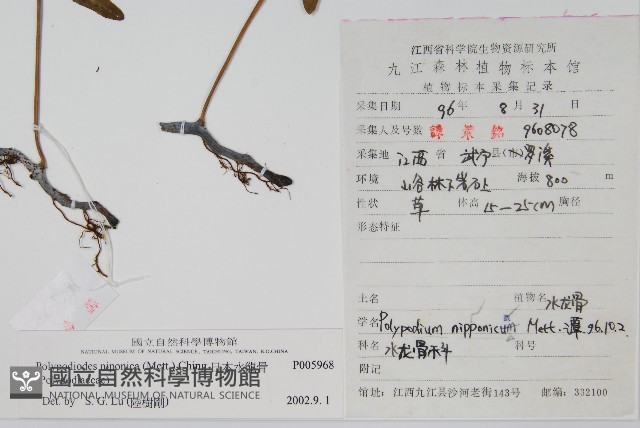 江西省科学院生物资源研究所
九江森林植物标本馆
植物标本采集记录
采集日期 96年 8月31日
采集人及号数 譚策銘 9608078
采集地 江西省 武宁县(市)罗溪
环境 山谷林下岩石上 海拔 800 m
性状 草 体高 15—25cm 胸径
形态特征
土名 植物名 水龙骨
学名 Polypodium nipponicum Mett. 譚 96.10.2.
科名 水龙骨科 别号
附记
馆地:江西九江县沙河老街143号 邮编:332100
國立自然科學博物館
NATIONAL MUSEUM OF NATURAL SCIENCE, TAICHUNG, TAIWAN, R.O.CHINA
Polypodiodes niponica (Mett.) Ching 日本水龍骨 P005968
Det. by S. G. Lu (陸樹剛) 2002.9.1
國立自然科學博物館
NATIONAL MUSEUM OF NATURAL SCIENCE